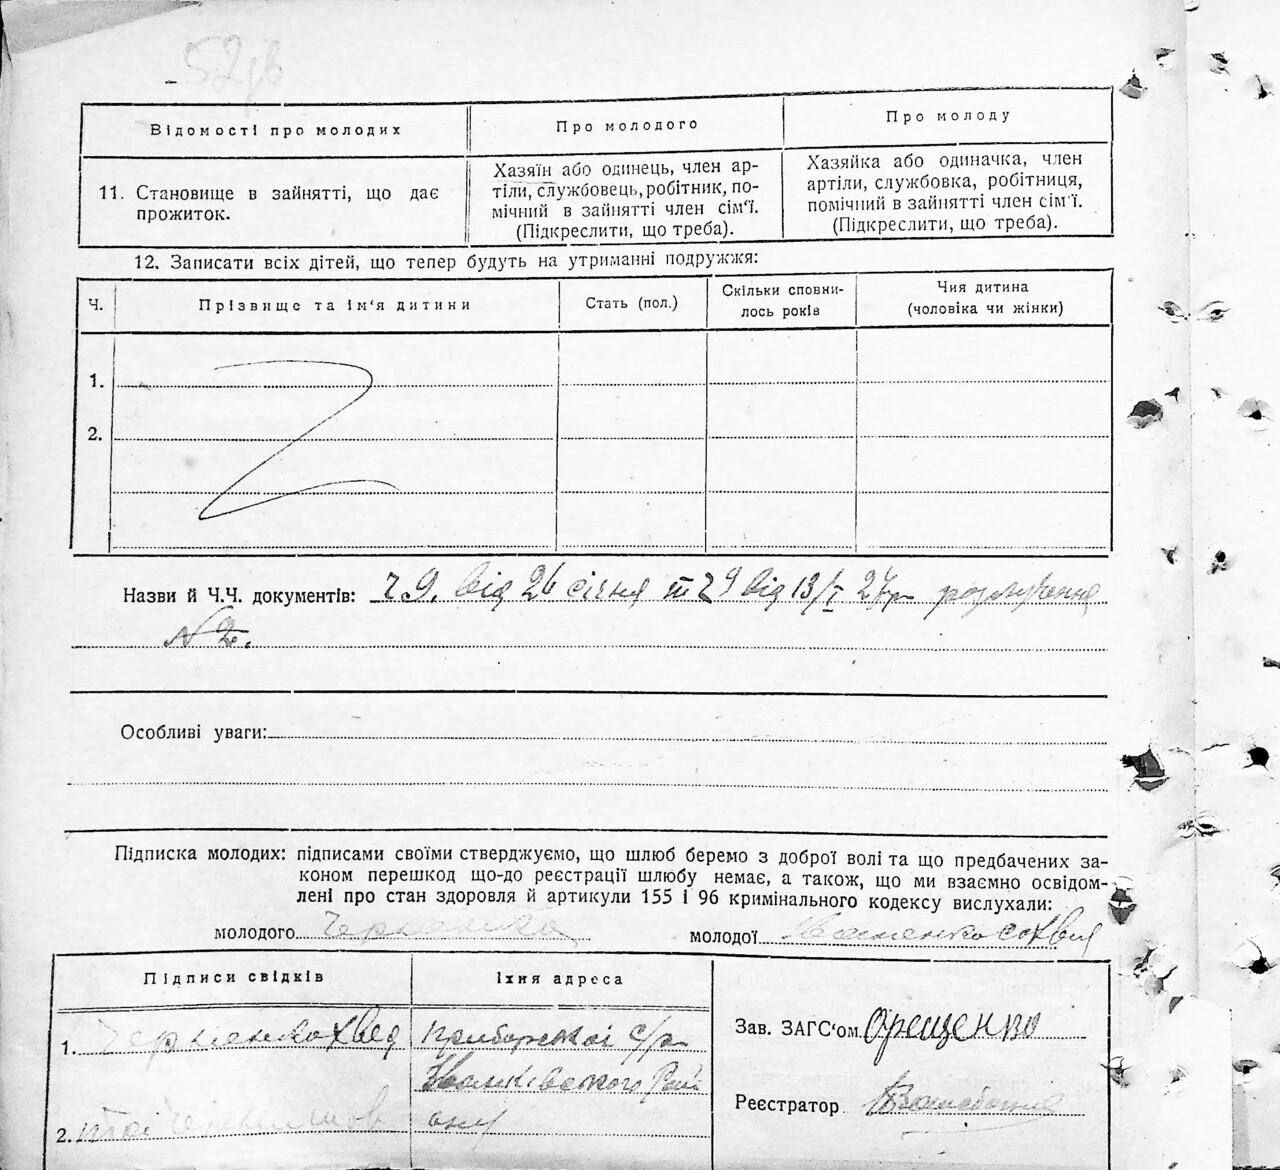 52 зв
Відомості про молодих
Про молодого
Про молоду
11. Становище в зайнятті, що дає
прожиток.
Хазяїн або одинець, член ар-
тіли, службовець, робітник, по-
мічний в зайнятті член сім'ї.
(Підкреслити, що треба).
Хазяйка або одиначка, член
артіли, службовка, робітниця,
помічний в зайнятті член сім'ї.
(Підкреслити, що треба).
12. Записати всіх дітей, що тепер будуть на утриманні подружжя:
Ч.
Прізвище та ім'я дитини
Стать (пол.)
Скільки сповни-
лось років
Чия дитина
(чоловіка чи жінки)
1.
2.
Назви й Ч.Ч. документів: ч 9. від 26 січня ч 9 від 13/I 27р
№ 2.
Особливі уваги:
Підписка молодих: підписами своїми стверджуємо, що шлюб беремо з доброї волі та що предбачених за-
коном перешкод що-до реєстрації шлюбу немає, а також, що ми взаємно освідом-
лені про стан здоровля й артикули 155 і 96 кримінального кодексу вислухали:
молодого
молодої
Підписи свідків
Їхня адреса
1. с/р
2.
Зав. ЗАГС'ом Орещенко
Реєстратор